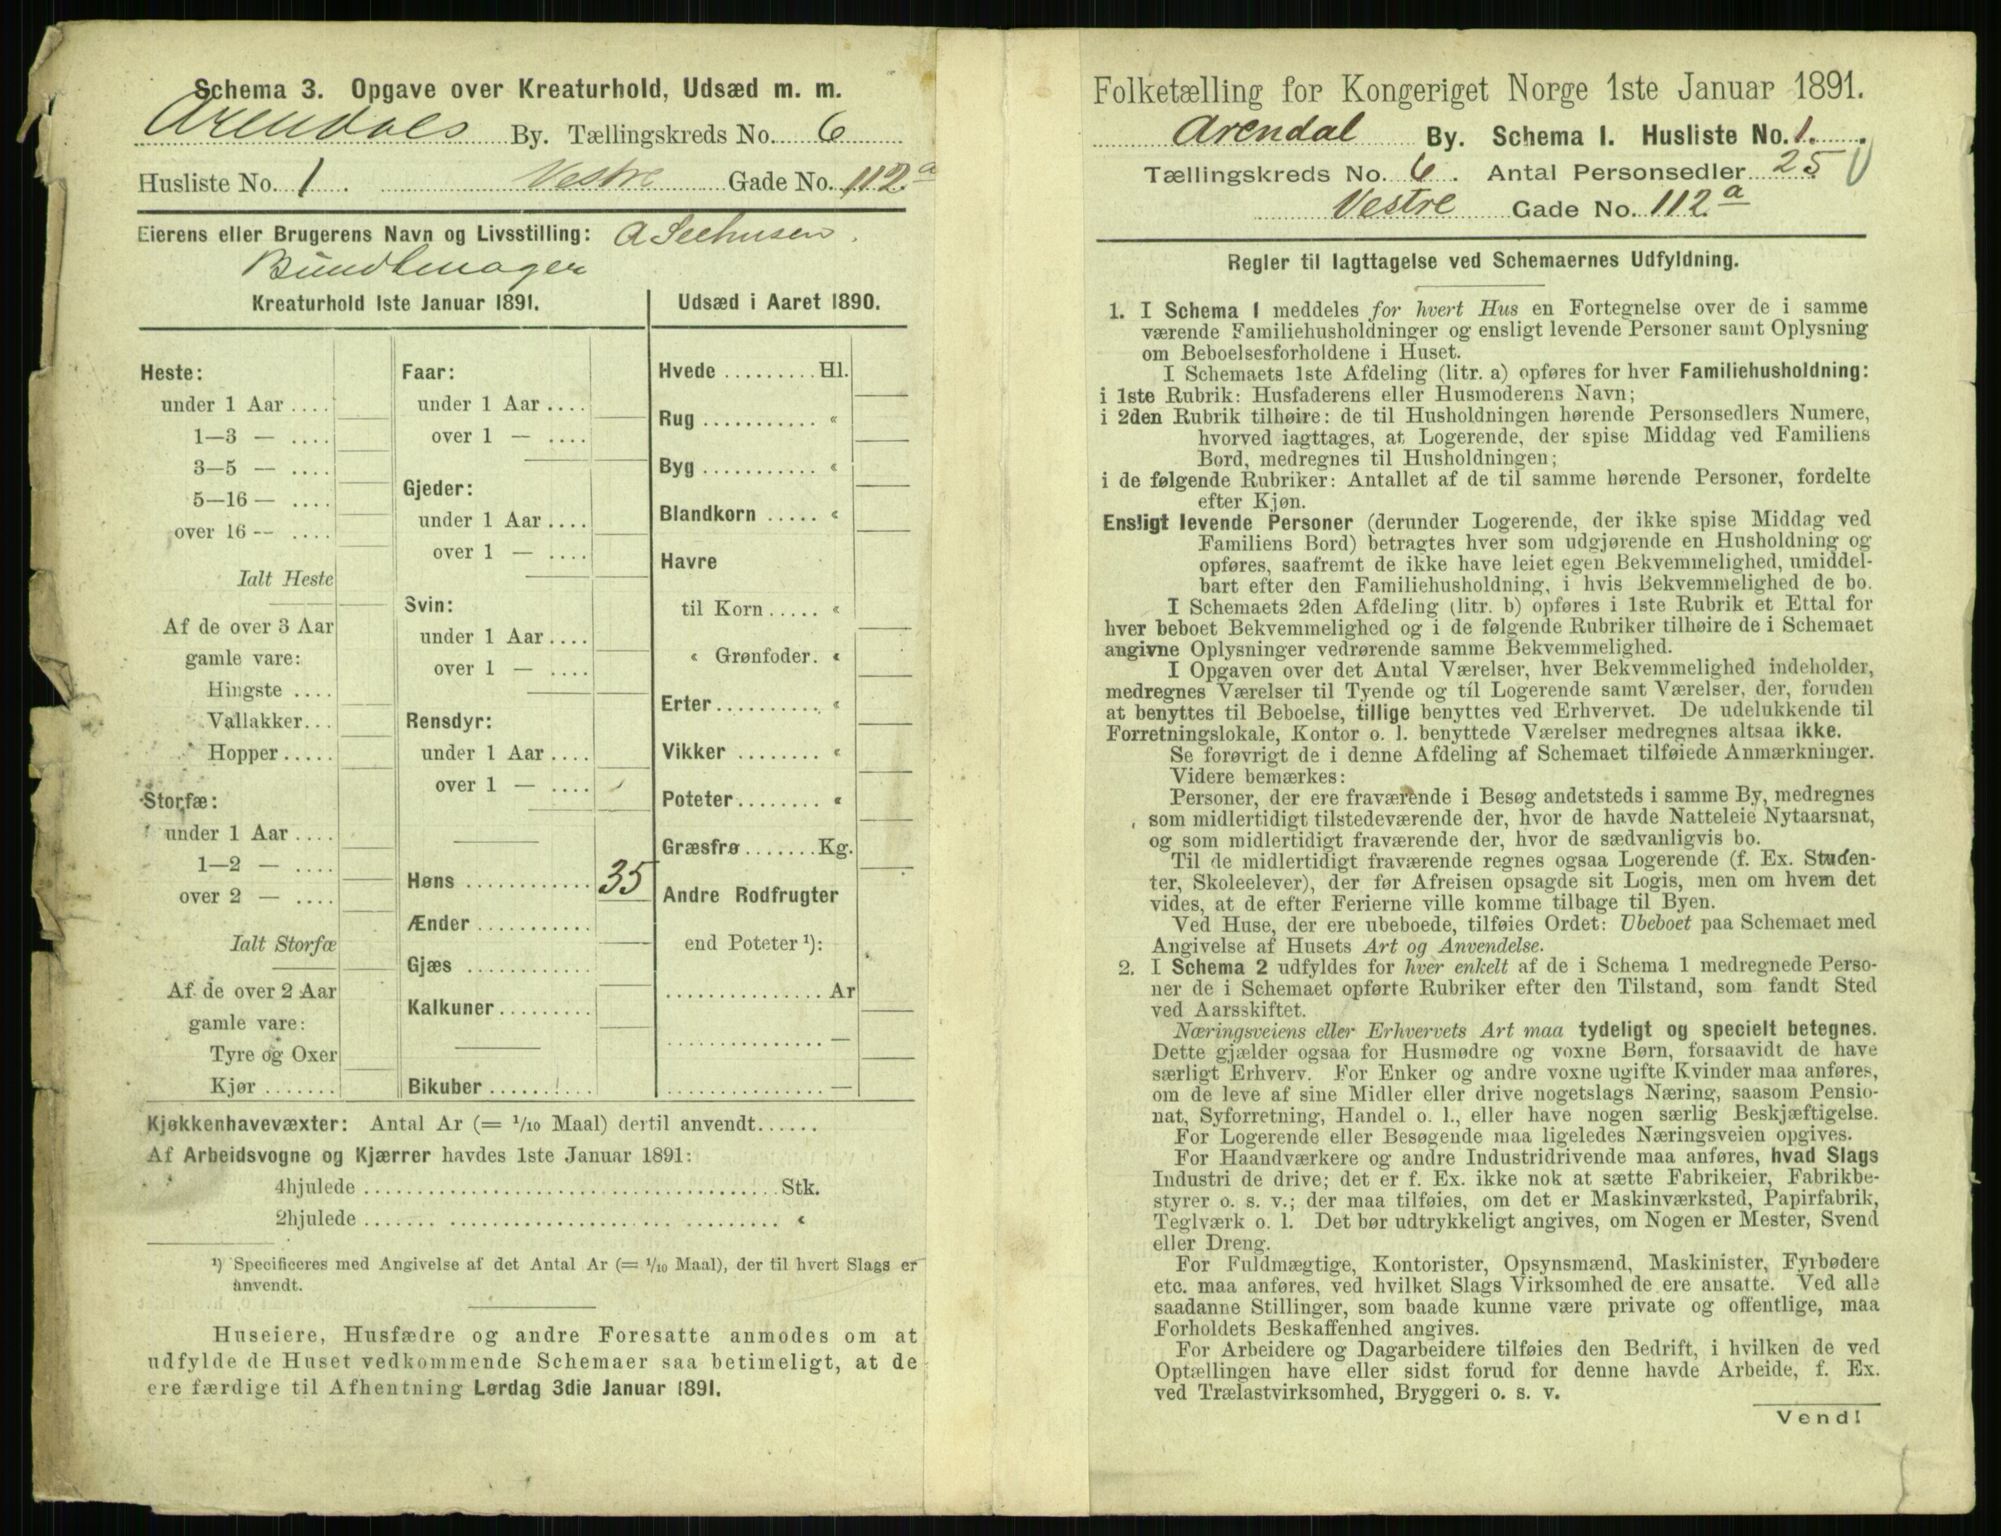 Schema 3. Opgave over Kreaturhold, Udsæd m. m.
Arendals By. Tællingskreds No. 6
Husliste No. 1. Vestre Gade No. 112.a
Eierens eller Brugerens Navn og Livsstilling: A Seehusen.
Bundtmager
Kreaturhold 1ste Januar 1891.
Heste:
under 1 Aar ....
1—3 — ....
3—5 — ....
5—16 — ....
over 16 -- ....
Ialt Heste
Af de over 3 Aar
gamle vare:
Hingste ....
Vallakker...
Hopper.....
Storfæ:
under 1 Aar ....
1—2 — ....
over 2 — ....
Ialt Storfæ
Af de over 2 Aar
gamle vare:
Tyre og Oxer
Kjør.......
Faar:
under 1 Aar ....
over 1 — ....
Gjeder:
under 1 Aar ....
over 1 — ....
Svin:
under 1 Aar ....
over 1 — ....
Rensdyr:
under 1 Aar ....
over 1 — ....
Høns ............ 35
Ænder...........
Gjæs ............
Kalkuner.........
Bikuber..........
Udsæd i Aaret 1890.
Hvede ......... Hl.
Rug ........... «
Byg ........... «
Blandkorn ..... «
Havre
til Korn..... «
« Grønfoder. «
Erter.......... «
Vikker ........ «
Poteter........ «
Græsfrø....... Kg.
Andre Rodfrugter
end Poteter ¹):
............... Ar
............... —
............... —
Kjøkkenhavevæxter: Antal Ar (= 1/10 Maal) dertil anvendt......
Af Arbeidsvogne og Kjærrer havdes 1ste Januar 1891:
4hjulede ........................................ Stk.
2hjulede ........................................ «
¹) Specificeres med Angivelse af det Antal Ar (= 1/10 Maal), der til hvert Slags er
anvendt.
Huseiere, Husfædre og andre Foresatte anmodes om at
udfylde de Huset vedkommende Schemaer saa betimeligt, at de
ere færdige til Afhentning Lørdag 3die Januar 1891.
Folketælling for Kongeriget Norge 1ste Januar 1891.
Arendal By. Schema 1. Husliste No. 1.
Tællingskreds No. 6. Antal Personsedler 25
Vestre Gade No. 112.a
Regler til Iagttagelse ved Schemaernes Udfyldning.
1. I Schema 1 meddeles for hvert Hus en Fortegnelse over de i samme
værende Familiehusholdninger og ensligt levende Personer samt Oplysning
om Beboelsesforholdene i Huset.
I Schemaets 1ste Afdeling (litr. a) opføres for hver Familiehusholdning:
i 1ste Rubrik: Husfaderens eller Husmoderens Navn;
i 2den Rubrik tilhøire: de til Husholdningen hørende Personsedlers Numere,
hvorved iagttages, at Logerende, der spise Middag ved Familiens
Bord, medregnes til Husholdningen;
i de følgende Rubriker: Antallet af de til samme hørende Personer, fordelte
efter Kjøn.
Ensligt levende Personer (derunder Logerende, der ikke spise Middag ved
Familiens Bord) betragtes hver som udgjørende en Husholdning og
opføres, saafremt de ikke have leiet egen Bekvemmelighed, umiddel-
bart efter den Familiehusholdning, i hvis Bekvemmelighed de bo.
I Schemaets 2den Afdeling (litr. b) opføres i 1ste Rubrik et Ettal for
hver beboet Bekvemmelighed og i de følgende Rubriker tilhøire de i Schemaet
angivne Oplysninger vedrørende samme Bekvemmelighed.
I Opgaven over det Antal Værelser, hver Bekvemmelighed indeholder,
medregnes Værelser til Tyende og til Logerende samt Værelser, der, foruden
at benyttes til Beboelse, tillige benyttes ved Erhvervet. De udelukkende til
Forretningslokale, Kontor o. l. benyttede Værelser medregnes altsaa ikke.
Se forøvrigt de i denne Afdeling af Schemaet tilføiede Anmærkninger.
Videre bemærkes:
Personer, der ere fraværende i Besøg andetsteds i samme By, medregnes
som midlertidigt tilstedeværende der, hvor de havde Natteleie Nytaarsnat,
og som midlertidigt fraværende der, hvor de sædvanligvis bo.
Til de midlertidigt fraværende regnes ogsaa Logerende (f. Ex. Studen-
ter, Skoleelever), der før Afreisen opsagde sit Logis, men om hvem det
vides, at de efter Ferierne ville komme tilbage til Byen.
Ved Huse, der ere ubeboede, tilføies Ordet: Ubeboet paa Schemaet med
Angivelse af Husets Art og Anvendelse.
2. I Schema 2 udfyldes for hver enkelt af de i Schema 1 medregnede Perso-
ner de i Schemaet opførte Rubriker efter den Tilstand, som fandt Sted
ved Aarsskiftet.
Næringsveiens eller Erhvervets Art maa tydeligt og specielt betegnes.
Dette gjælder ogsaa for Husmødre og voxne Børn, forsaavidt de have
særligt Erhverv. For Enker og andre voxne ugifte Kvinder maa anføres,
om de leve af sine Midler eller drive nogetslags Næring, saasom Pensio-
nat, Syforretning, Handel o. l., eller have nogen særlig Beskjæftigelse.
For Logerende eller Besøgende maa ligeledes Næringsveien opgives.
For Haandværkere og andre Industridrivende maa anføres, hvad Slags
Industri de drive; det er f. Ex. ikke nok at sætte Fabrikeier, Fabrikbe-
styrer o. s. v.; der maa tilføies, om det er Maskinværksted, Papirfabrik,
Teglværk o. l. Det bør udtrykkeligt angives, om Nogen er Mester, Svend
eller Dreng.
For Fuldmægtige, Kontorister, Opsynsmænd, Maskinister, Fyrbødere
etc. maa anføres, ved hvilket Slags Virksomhed de ere ansatte. Ved alle
saadanne Stillinger, som baade kunne være private og offentlige, maa
Forholdets Beskaffenhed angives.
For Arbeidere og Dagarbeidere tilføies den Bedrift, i hvilken de ved
Optællingen have eller sidst forud for denne havde Arbeide, f. Ex.
ved Trælastvirksomhed, Bryggeri o. s. v.
Vend!